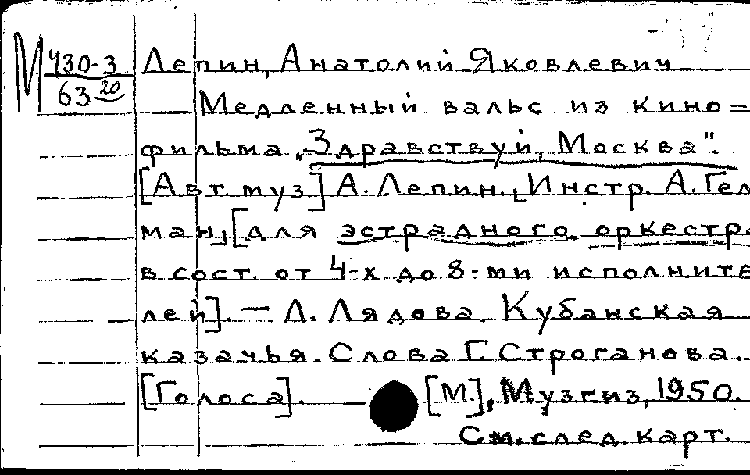 М 430-3 Лепин, Анатолий Яковлевич
63 20 Медленный вальс из кино=
фильма „Здравствуй, Москва".
[Авт. муз.] А. Лепин. Инстр. А. Гел
ман, [для эстрадного оркестр.
в сост. от 4-х до 8-ми исполните
лей]. — Л. Лядова. Кубанская
казачья. Слова Г. Строганова.
[Голоса]. — [М.], Музгиз, 1950.
См. след. карт.